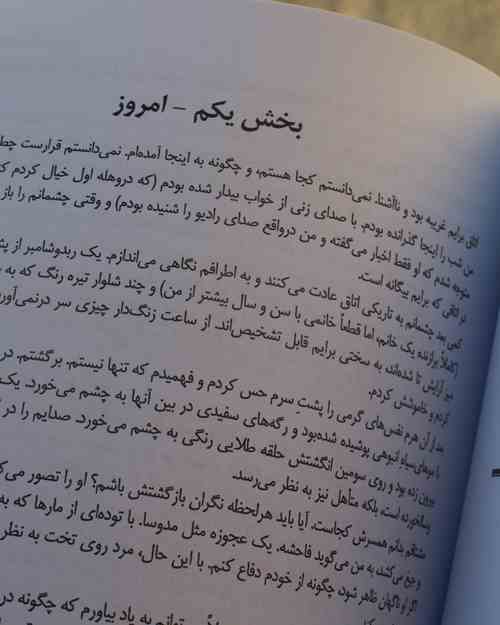 بخش یکم – امروز
اتاق برایم غریبه بود و ناآشنا. نمی‌دانستم کجا هستم، و چگونه به اینجا آمده‌ام. نمی‌دانستم قرارست
من شب را اینجا گذرانده بودم. با صدای زنی از خواب بیدار شده بودم (که دروهله اول خیال کردم
متوجه شدم که او فقط اخبار می‌گفته و من درواقع صدای رادیو را شنیده بودم) و وقتی چشمانم را باز
در اتاقی که برایم بیگانه است.
کمی بعد چشمانم به تاریکی اتاق عادت می‌کنند و به اطرافم نگاهی می‌اندازم. یک ربدوشامبر از
(کاملاً برازنده یک خانم، اما قطعاً خانمی با سن و سال بیشتر از من) و چند شلوار تیره رنگ که به
میز آرایش تا شده‌اند به سختی برایم قابل تشخیص‌اند. از ساعت زنگ‌دار چیزی سر درنمی‌آورم
کردم و خاموشش کردم.
بعد از آن هرم نفس‌های گرمی را پشت سرم حس کردم و فهمیدم که تنها نیستم. برگشتم. در
با موهای‌سیاه انبوهی پوشیده شده‌بود و رگه‌های سفیدی در بین آنها به چشم می‌خورد. یک
بیرون زده بود و روی سومین انگشتش حلقه طلایی رنگی به چشم می‌خورد. صدایم را در
سالخورده است، بلکه متأهل نیز به نظر می‌رسد.
مشتاقم بدانم همسرش کجاست. آیا باید هرلحظه نگران بازگشتش باشم؟ او را تصور
و جیغ می‌کشد به من می‌گوید فاحشه. یک عجوزه مثل مدوسا. با توده‌ای از مارها که به
اگر او ناگهان ظاهر شود، چگونه از خودم دفاع کنم. با این حال، مرد روی تخت به نظر
توانم به یاد بیاورم که چگونه در